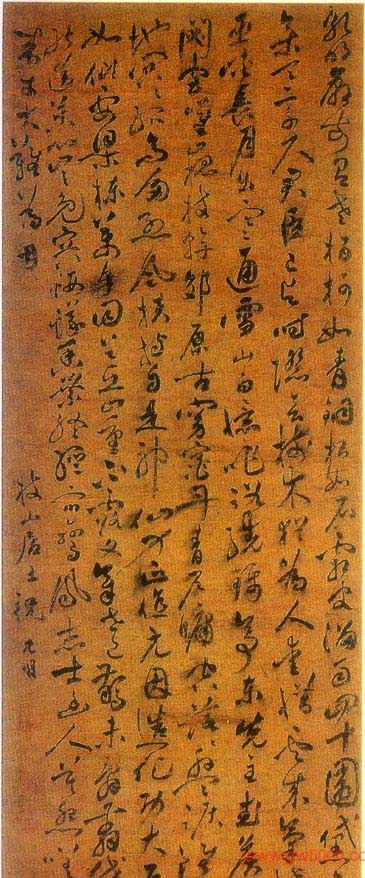 孔明廟前有老柏柯如青銅根如石霜皮溜雨四十圍黛
參天二千尺君臣已與時際會樹木猶為人愛惜雲來氣
巫峽長月出寒通雪山白憶昨路繞錦亭東先主武侯
閟宮崔嵬枝幹郊原古窈窕丹青戶牖空落落盤踞雖
地冥冥孤高多烈風扶持自是神明力正直元因造化功大
如傾要梁棟萬牛回首丘山重不露文章世已驚未辭翦伐
能送苦心豈免容螻蟻香葉終經宿鸞鳳志士幽人莫怨嗟
來材大難為用
枝山居士祝允明